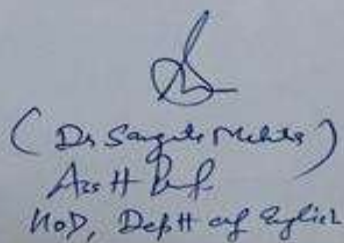 (Dr Sangeeta Mehta)
Asstt Prof.
HoD, Deptt of English